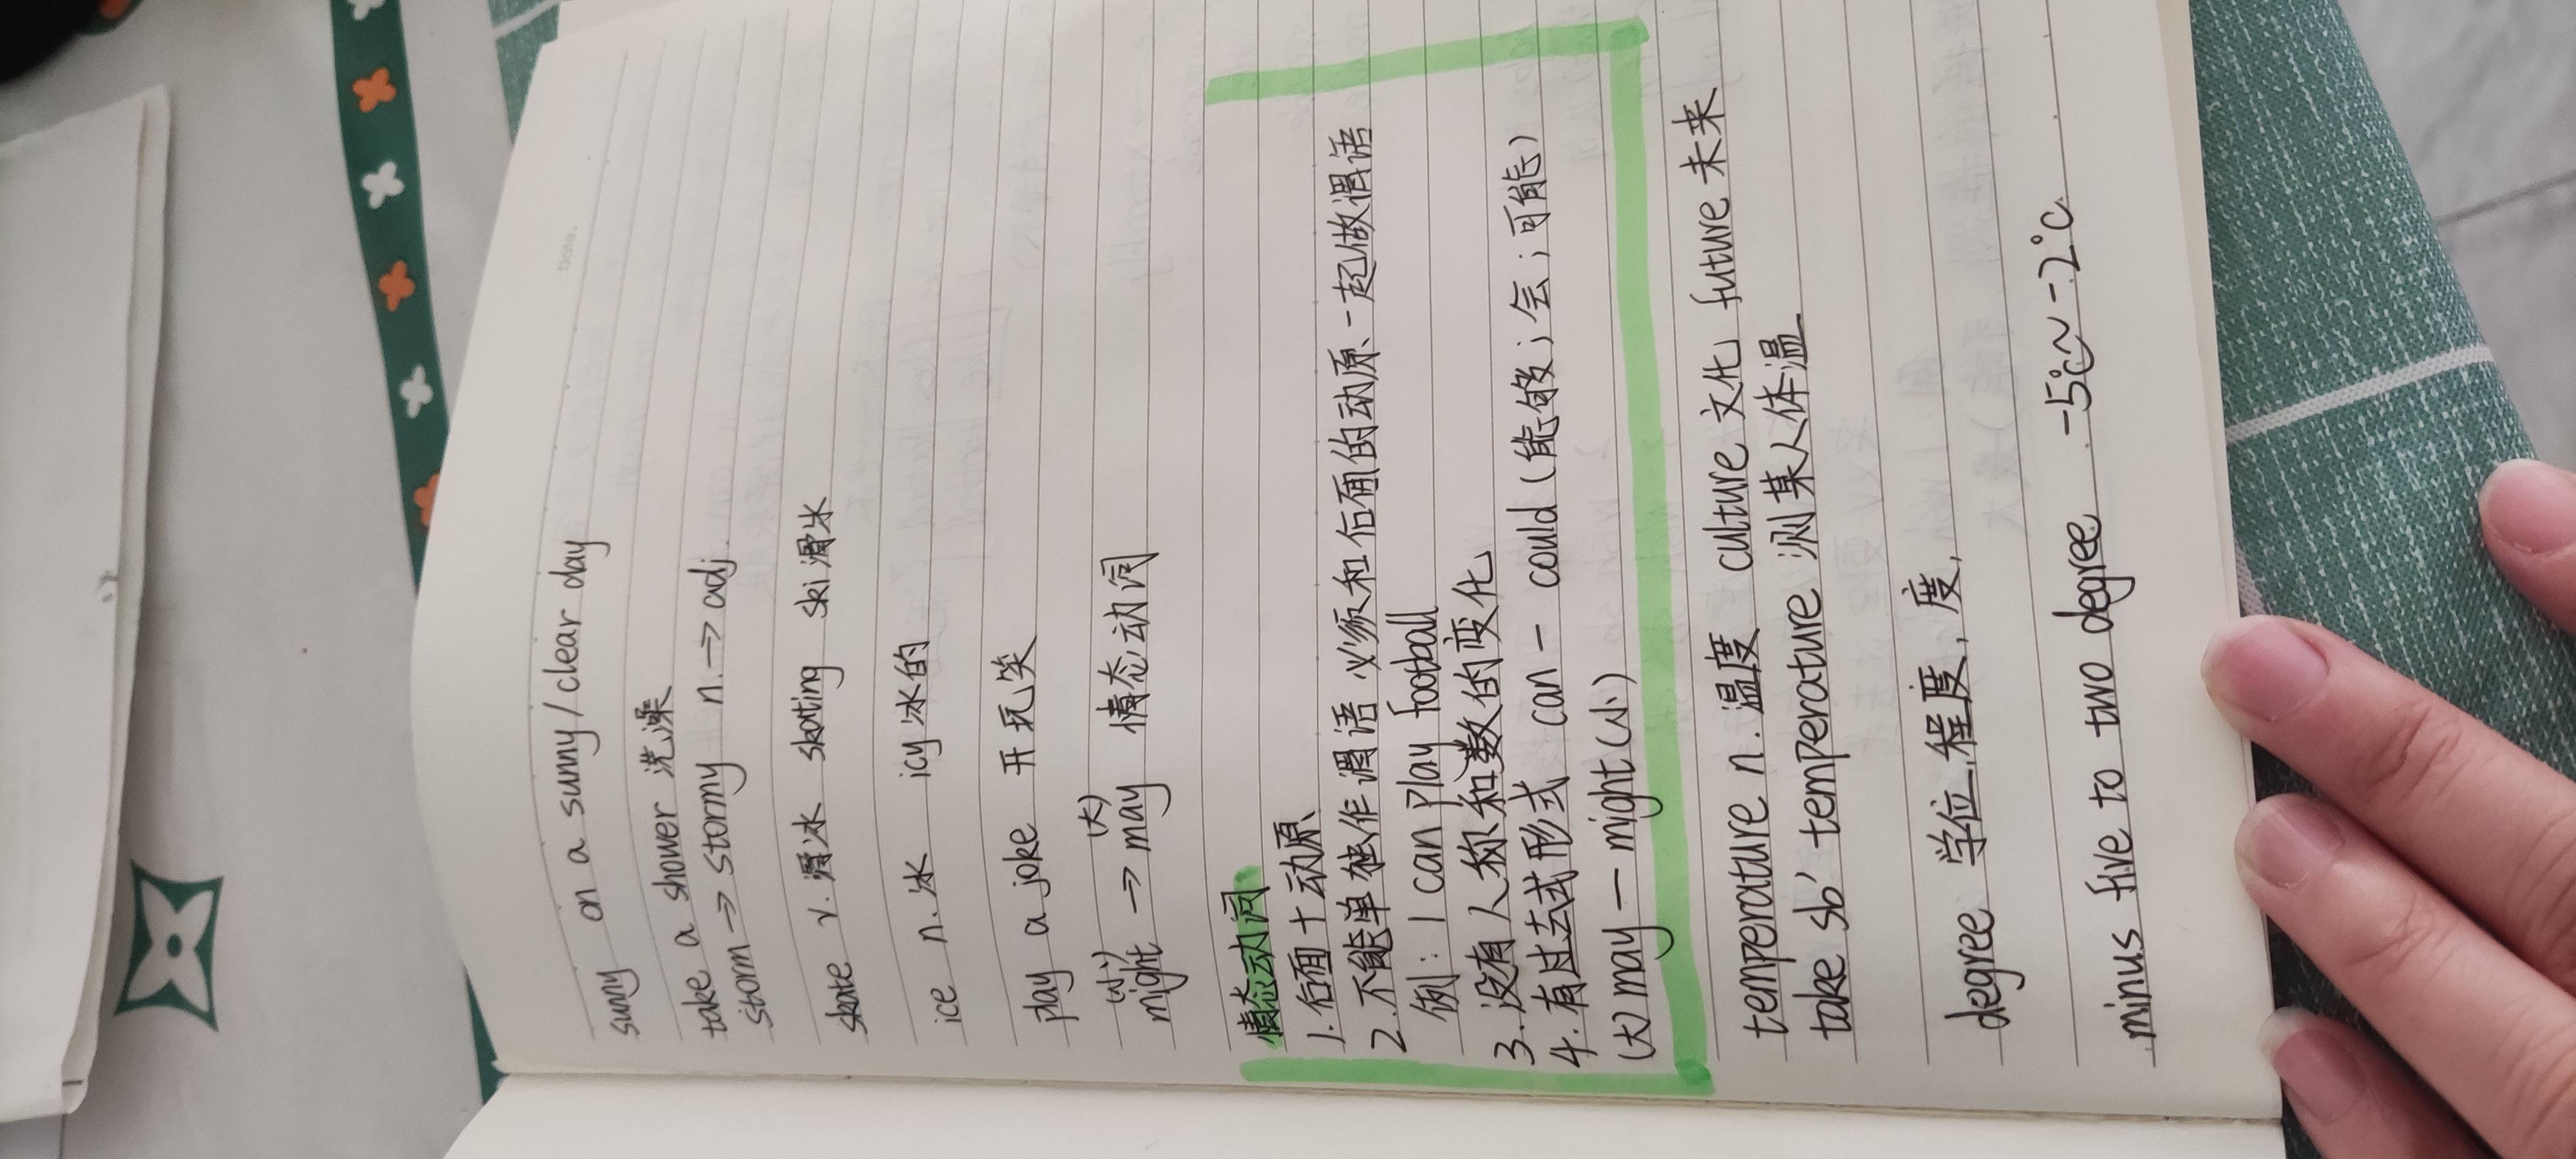 Date.
sunny on a sunny/clear day
take a shower 洗澡
storm → stormy n. → adj.
skate v.滑冰 skating ski 滑冰
ice n.冰 icy 冰的
play a joke 开玩笑
(小) (大)
might → may 情态动词
情态动词
1.后面+动原
2.不能单独作谓语 必须和后面的动原、一起做谓语
例: I can play football
3.没有人称和数的变化
4.有过去式形式 can - could (能够; 会; 可能)
(大) may — might (小)
temperature n. 温度 culture 文化 future 未来
take sb' temperature 测某人体温
degree 学位,程度,度,
minus five to two degree -5℃~-2℃